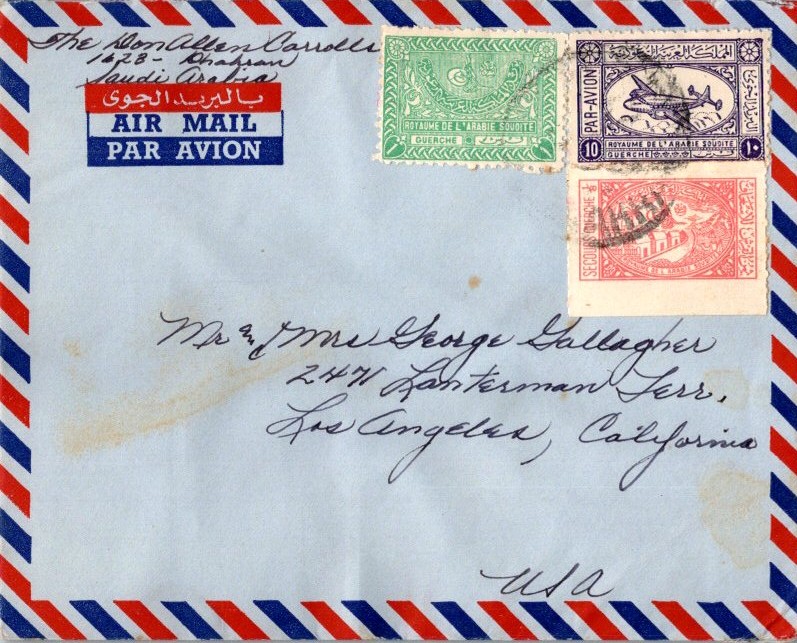 The Don Allen Carrolls
1623 - Dhahran
Saudi Arabia
بالبريد الجوى
AIR MAIL
PAR AVION
ROYAUME DE L'ARABIE SOUDITE
GUERCHE
المملكة العربية السعودية
PAR-AVION
10 ROYAUME DE L'ARABIE SOUDITE ١٠
GUERCHE
SECOURS GUERCHE 1/8
ROYAUME DE L'ARABIE SOUDITE
Mr and Mrs George Gallagher
2471 Lanterman Terr.
Los Angeles, California
USA